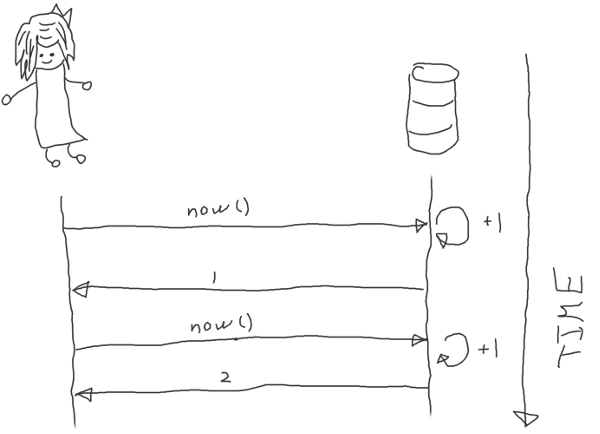 now()
+1
1
now()
+1
2
TIME